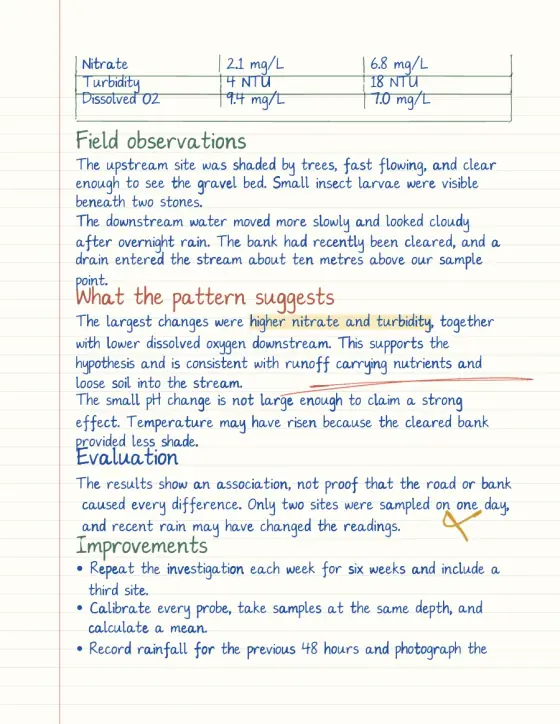 Nitrate 2.1 mg/L 6.8 mg/L
Turbidity 4 NTU 18 NTU
Dissolved O2 9.4 mg/L 7.0 mg/L
Field observations
The upstream site was shaded by trees, fast flowing, and clear
enough to see the gravel bed. Small insect larvae were visible
beneath two stones.
The downstream water moved more slowly and looked cloudy
after overnight rain. The bank had recently been cleared, and a
drain entered the stream about ten metres above our sample
point.
What the pattern suggests
The largest changes were higher nitrate and turbidity, together
with lower dissolved oxygen downstream. This supports the
hypothesis and is consistent with runoff carrying nutrients and
loose soil into the stream.
The small pH change is not large enough to claim a strong
effect. Temperature may have risen because the cleared bank
provided less shade.
Evaluation
The results show an association, not proof that the road or bank
caused every difference. Only two sites were sampled on one day,
and recent rain may have changed the readings.
Improvements
• Repeat the investigation each week for six weeks and include a
third site.
• Calibrate every probe, take samples at the same depth, and
calculate a mean.
• Record rainfall for the previous 48 hours and photograph the